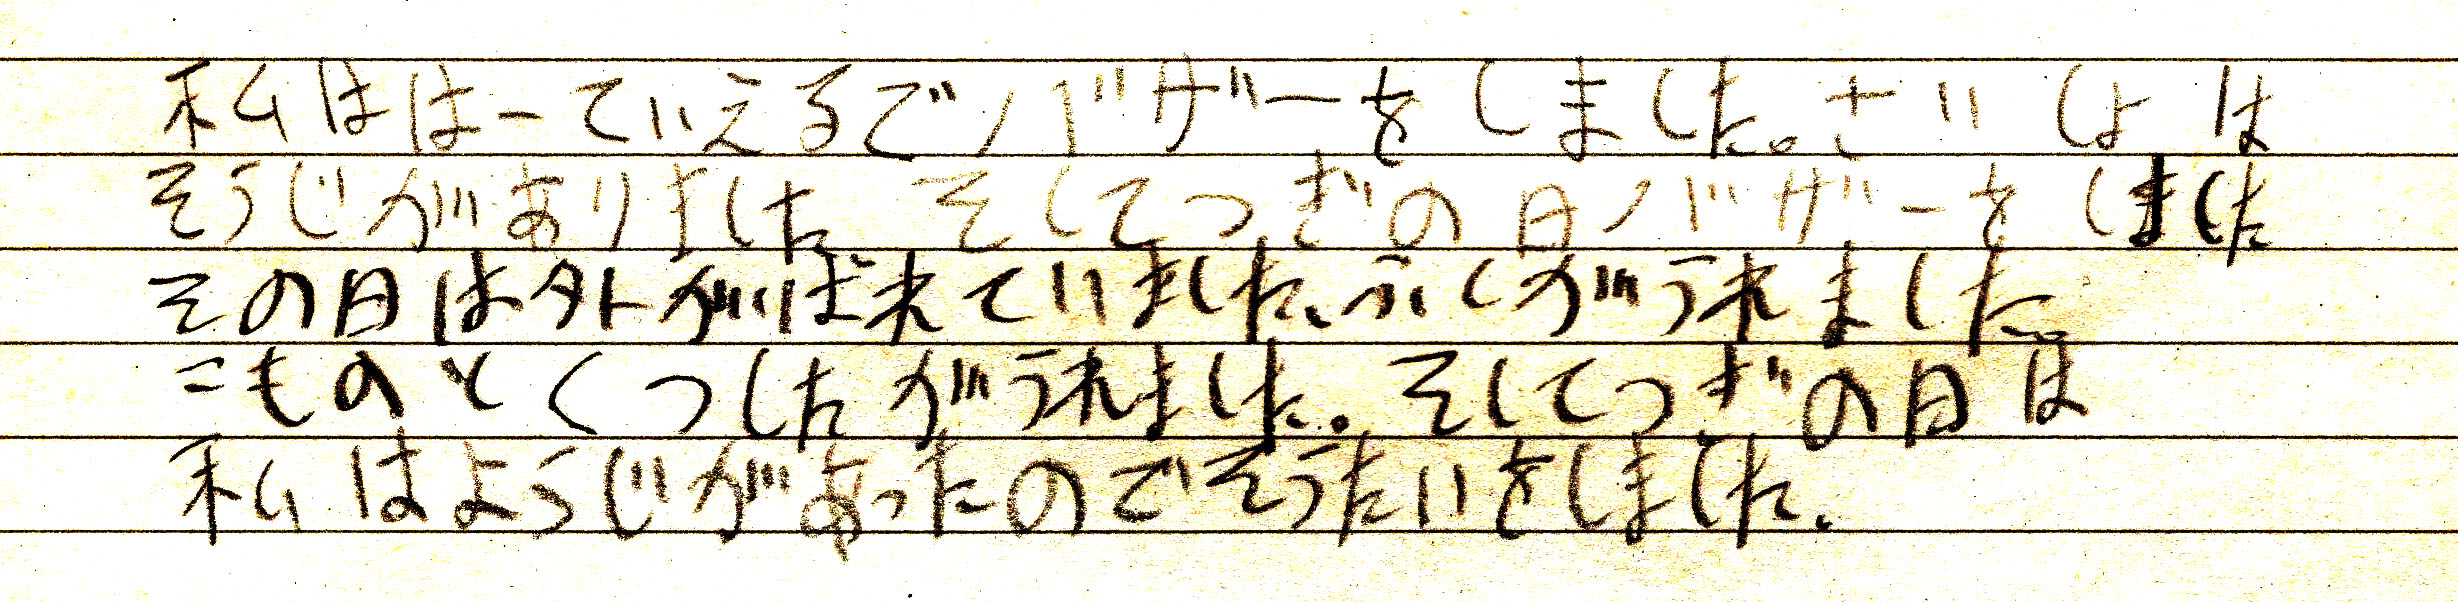 私ははーていえるでバザーをしました。さいしょは
そうじがありました そしてつぎの日バザーをしました
その日は外がいば来ていました、ふくがうれました。
こものとくつしたがうれました。そしてつぎの日は
私はようじがあったのでそうたいをしました。